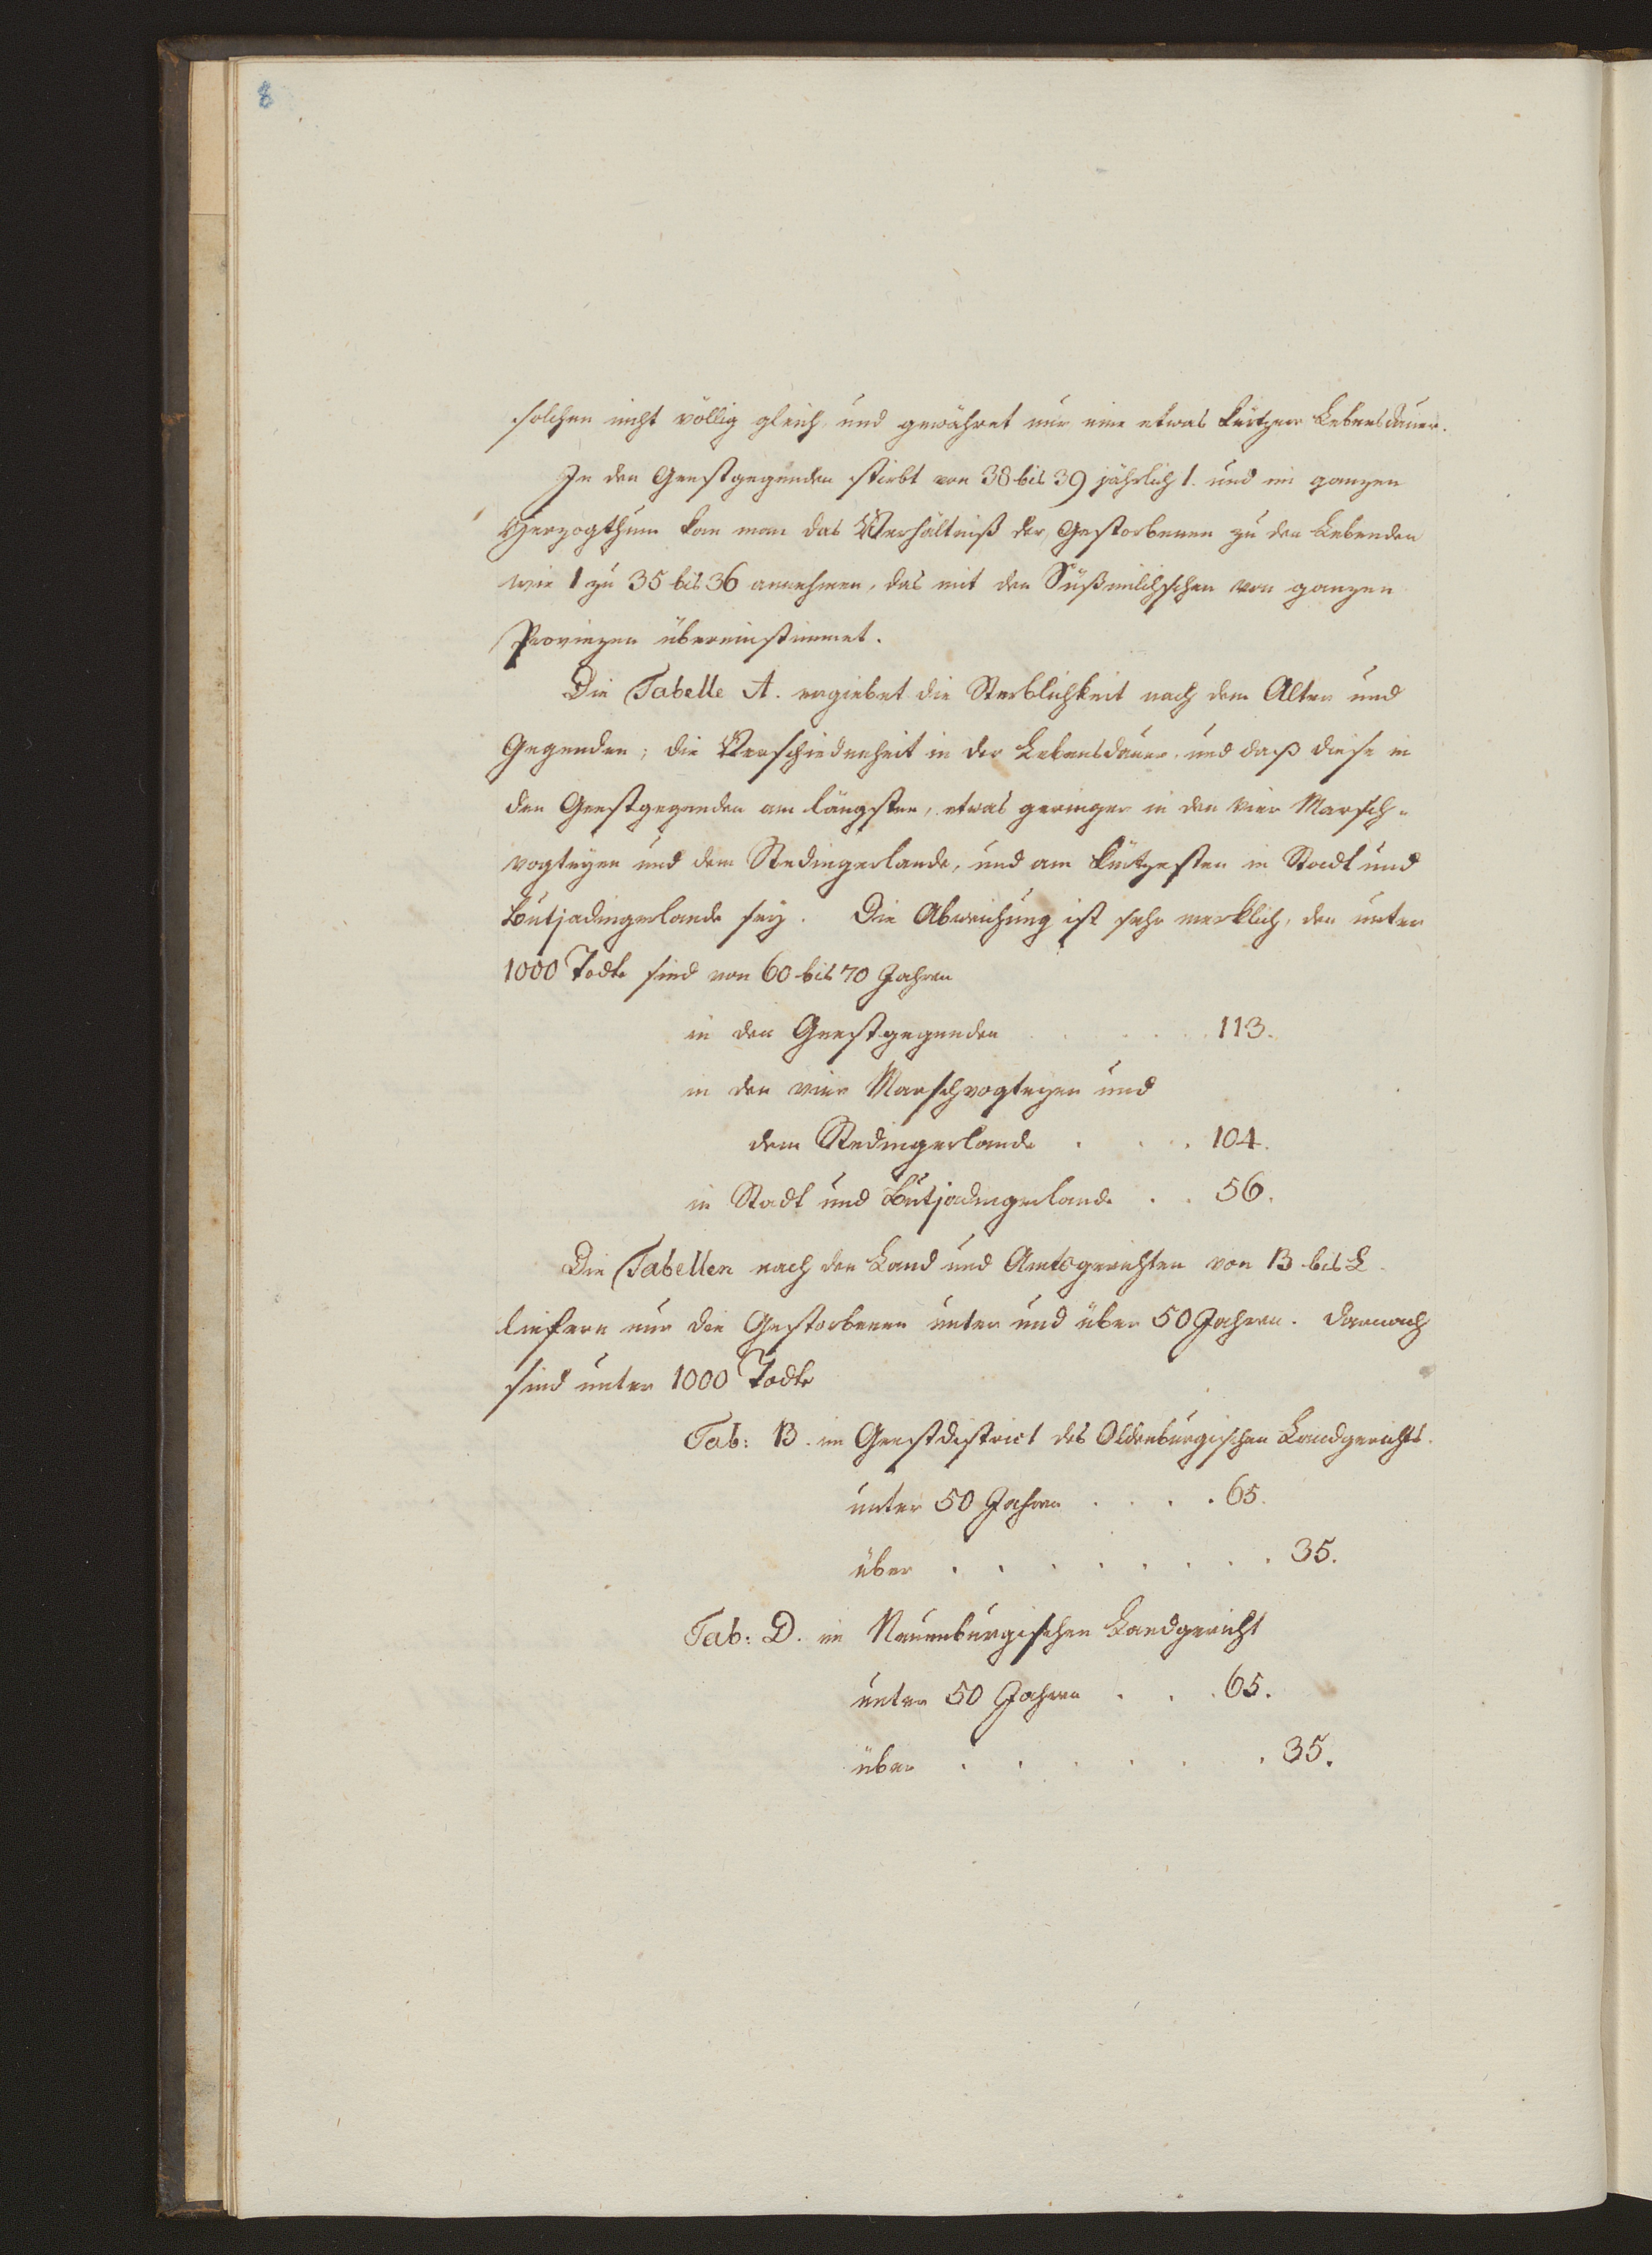 8
solchen nicht völlig gleich, und gewähret nur eine etwas kürtzere Lebensdauer.
In den Geestgegenden stirbt von 38 bis 39 jährlich 1. und im ganzen
Herzogthum kan man das Verhältniß der Gestorbenen zu den Lebenden
wie 1 zu 35 bis 36 annehmen, das mit den Süßmilchschen von ganzen
Provinzen übereinstimmet.
Die Tabelle A. ergiebet die Sterblichkeit nach dem Alter und
Gegenden; die Verschiedenheit in der Lebensdauer, und daß diese in
den Geestgegenden am längsten, etwas geringer in den vier Marsch-
vogteyen und dem Stedingerlande, und am kürtzesten in Stadt und
Butjadingerlande sey. Die Abweichung ist sehr merklich, den unter
1000 Todte sind von 60 bis 70 Jahren
in den Geestgegenden . . . . 113.
in den vier Marschvogteyen und
dem Stedingerlande . . . 104.
in Stadt und Butjadingerlande . . 56.
Die Tabellen nach den Land und Amtsgerichten von B bis L
liefern nur die Gestorbenen unter und über 50 Jahren. Darnach
sind unter 1000 Todte
Tab: B. im Geestdistrict des Oldenburgischen Landgerichts.
unter 50 Jahren . . . . 65.
über . . . . . . . . 35.
Tab: D. im Neuenburgischen Landgericht
unter 50 Jahren . . . 65.
über . . . . . . . 35.